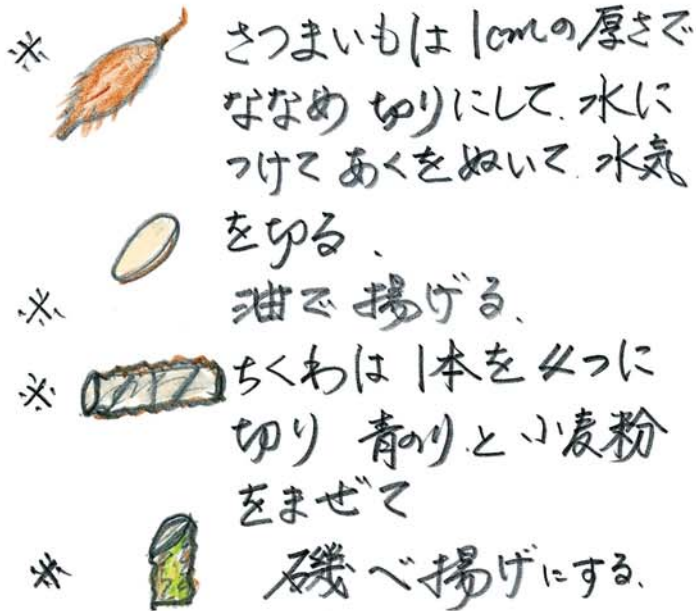 ※ さつまいもは 1cmの厚さで
ななめ切りにして、水に
つけて あくをぬいて、水気
を切る、
※ 油で揚げる、
※ ちくわは 1本を 4つに
切り 青のりと、小麦粉
をまぜて
※ 磯べ揚げにする、